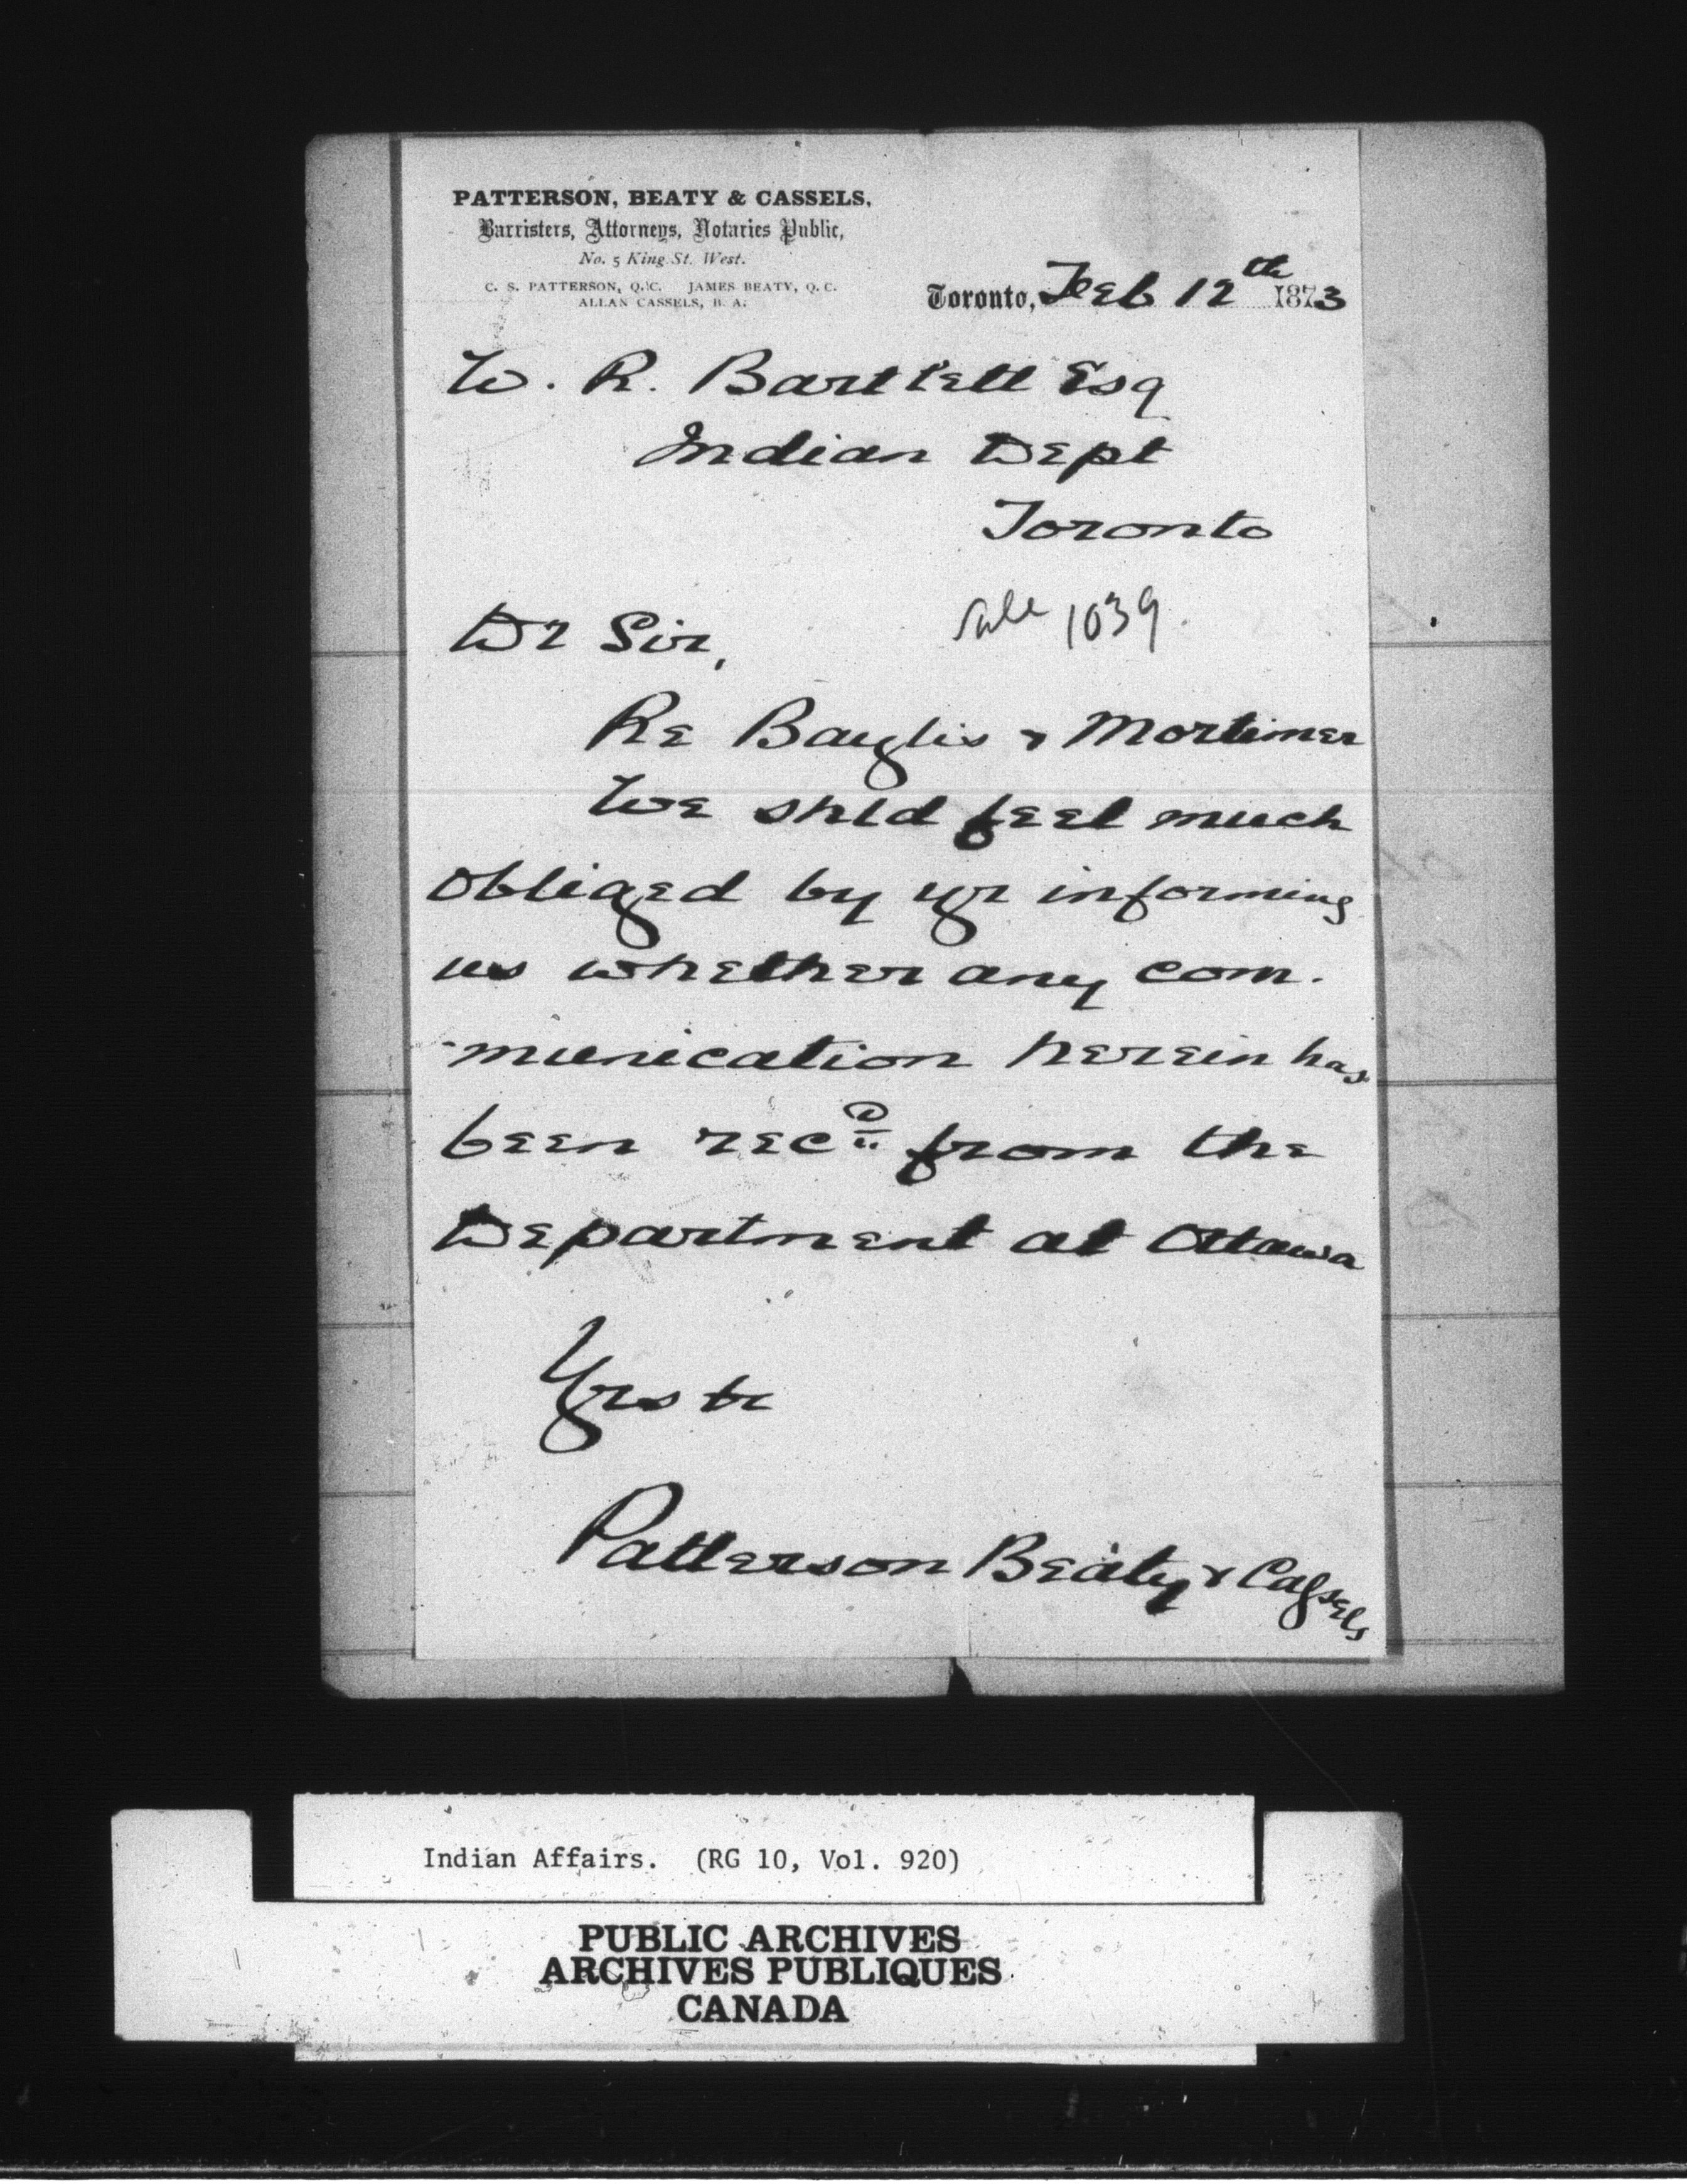 PATTERSON, BEATY & CASSELS,
Barristers, Attorneys, Notaries Public,
No. 5 King St. West.
C. S. PATTERSON, Q.C. JAMES BEATY, Q.C.
ALLAN CASSELS, B. A.
Toronto, Feb 12th 1873
W. R. Bartlett Esq
Indian Dept
Toronto
Sale 1039.
Dr Sir,
Re Baylis & Mortimer
We shld feel much
obliged by yr informing
us whether any com-
-munication herein has
been recd from the
Department at Ottawa
Yrs tr
Patterson Beaty & Cassels
Indian Affairs. (RG 10, Vol. 920)
PUBLIC ARCHIVES
ARCHIVES PUBLIQUES
CANADA